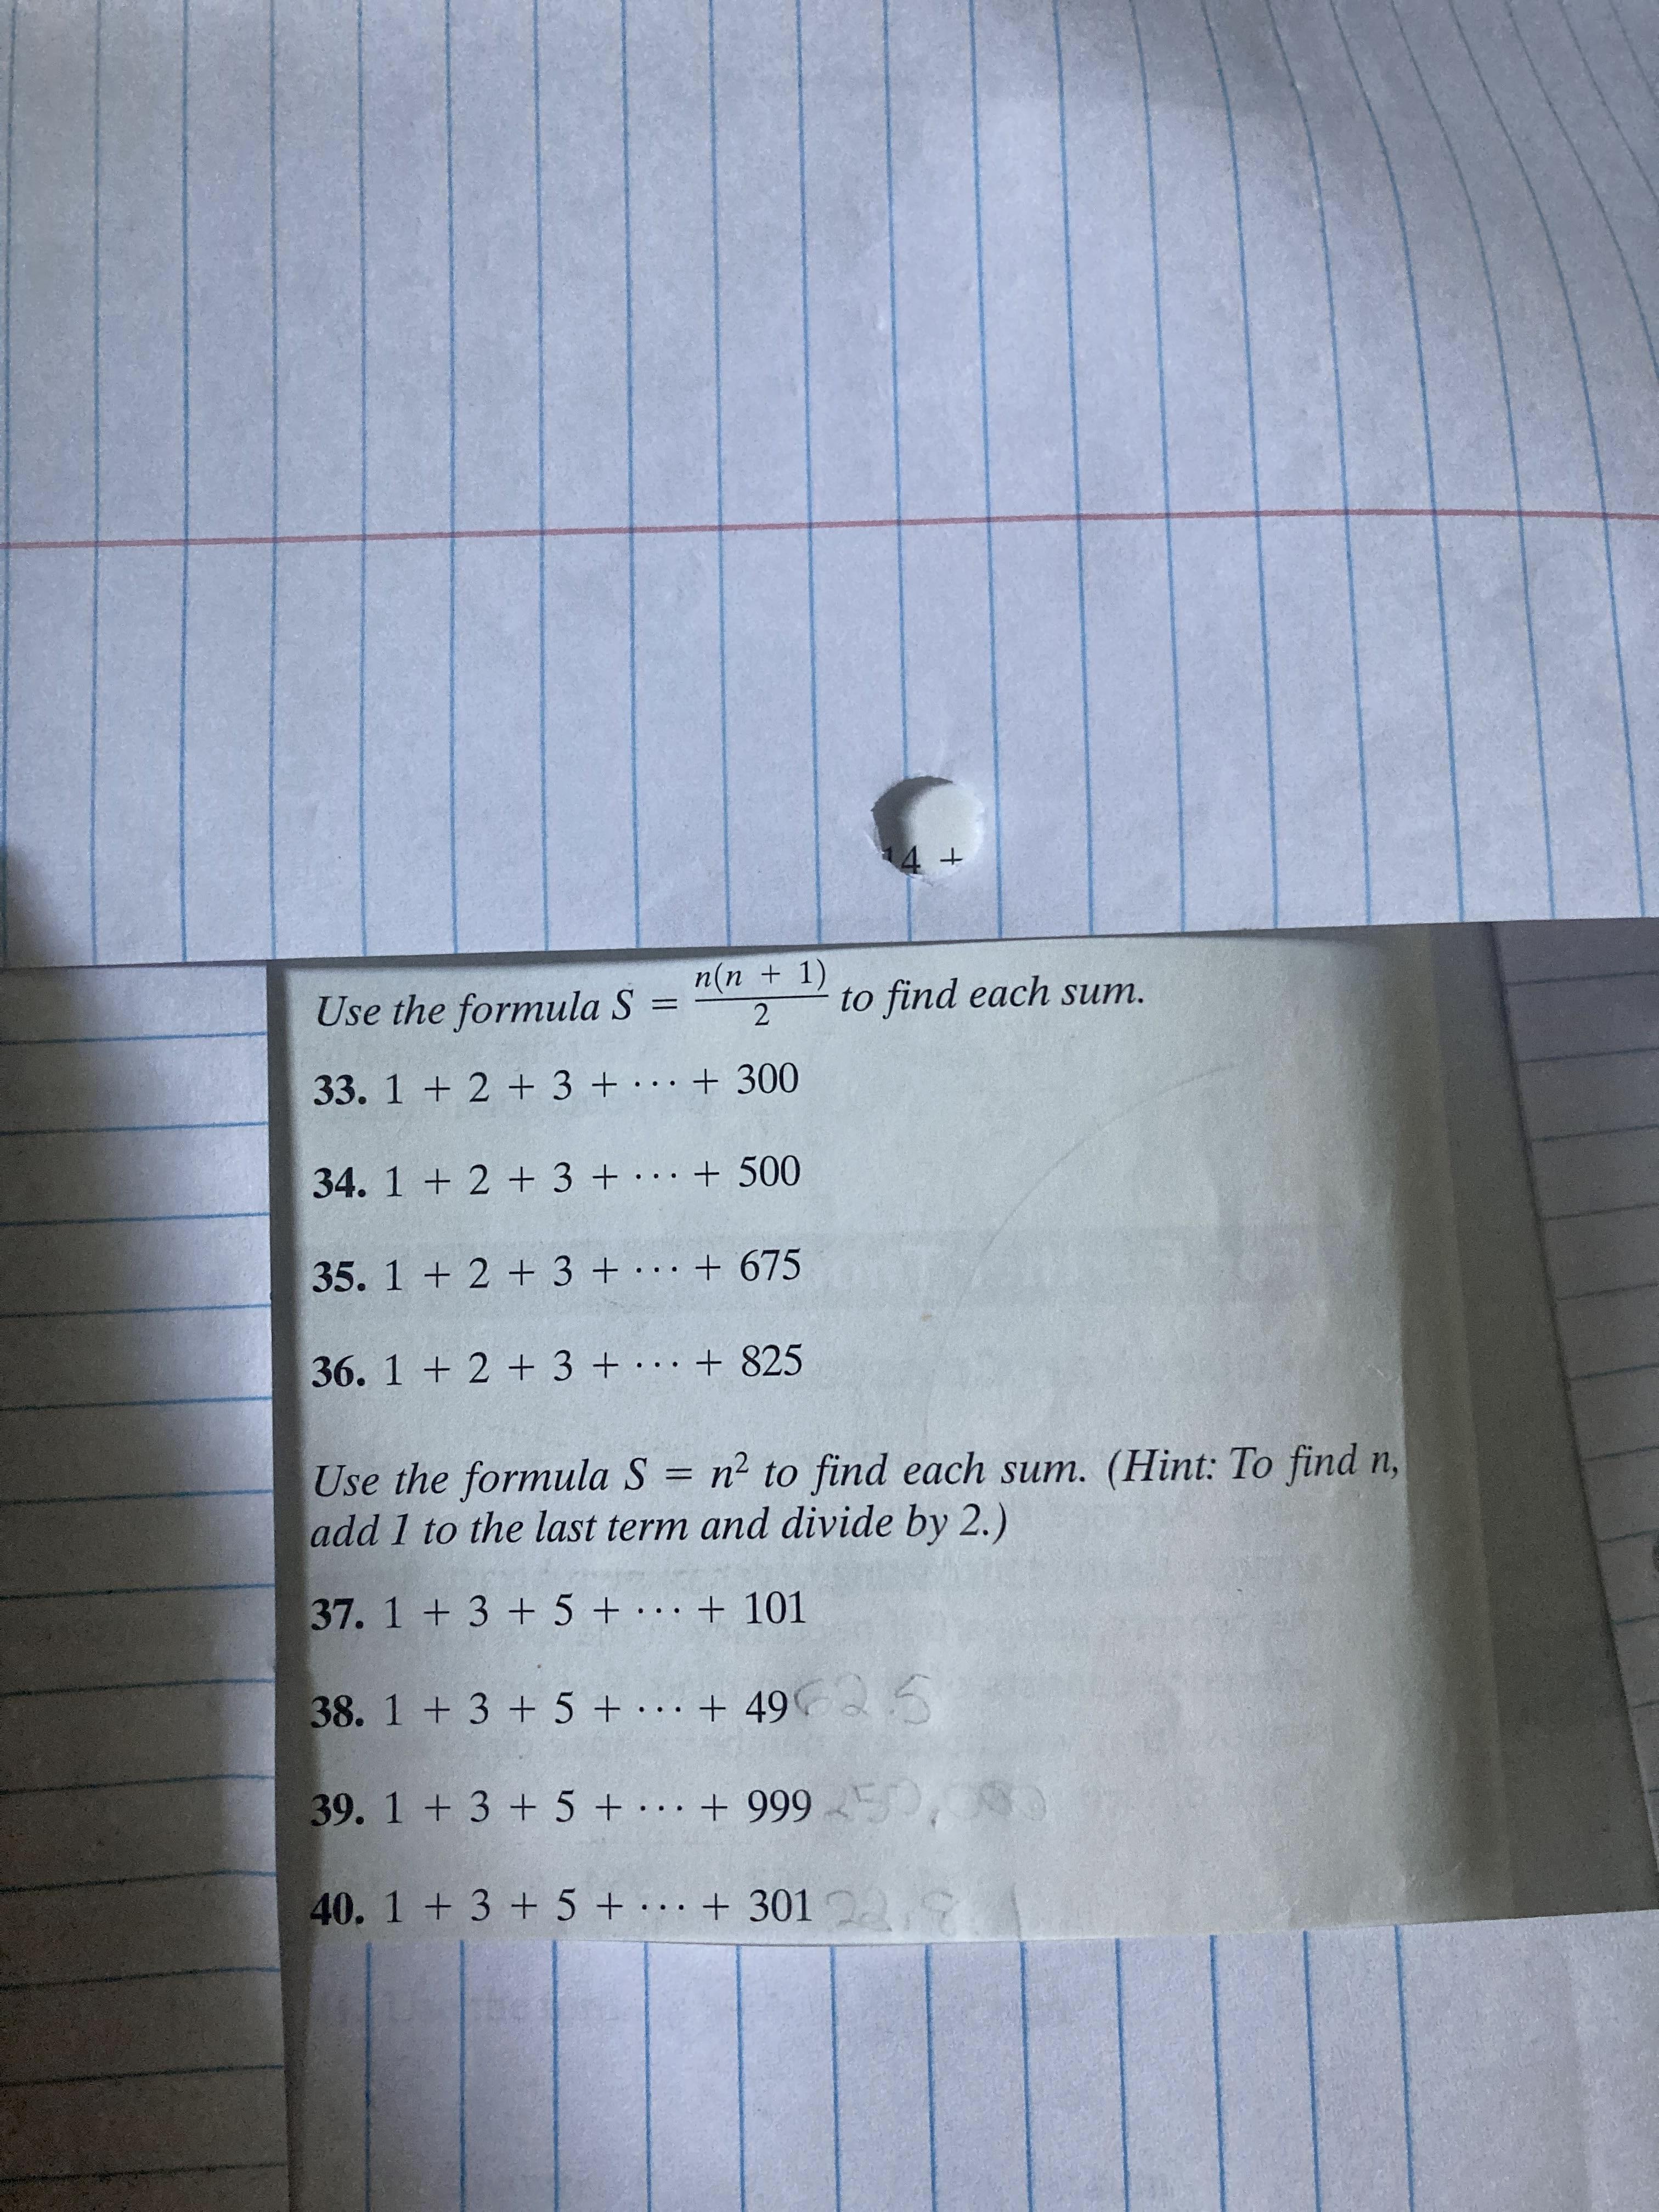 14 +
Use the formula S = n(n + 1)/2 to find each sum.
33. 1 + 2 + 3 + ··· + 300
34. 1 + 2 + 3 + ··· + 500
35. 1 + 2 + 3 + ··· + 675
36. 1 + 2 + 3 + ··· + 825
Use the formula S = n² to find each sum. (Hint: To find n,
add 1 to the last term and divide by 2.)
37. 1 + 3 + 5 + ··· + 101
38. 1 + 3 + 5 + ··· + 49 62.5
39. 1 + 3 + 5 + ··· + 999 250,000
40. 1 + 3 + 5 + ··· + 301